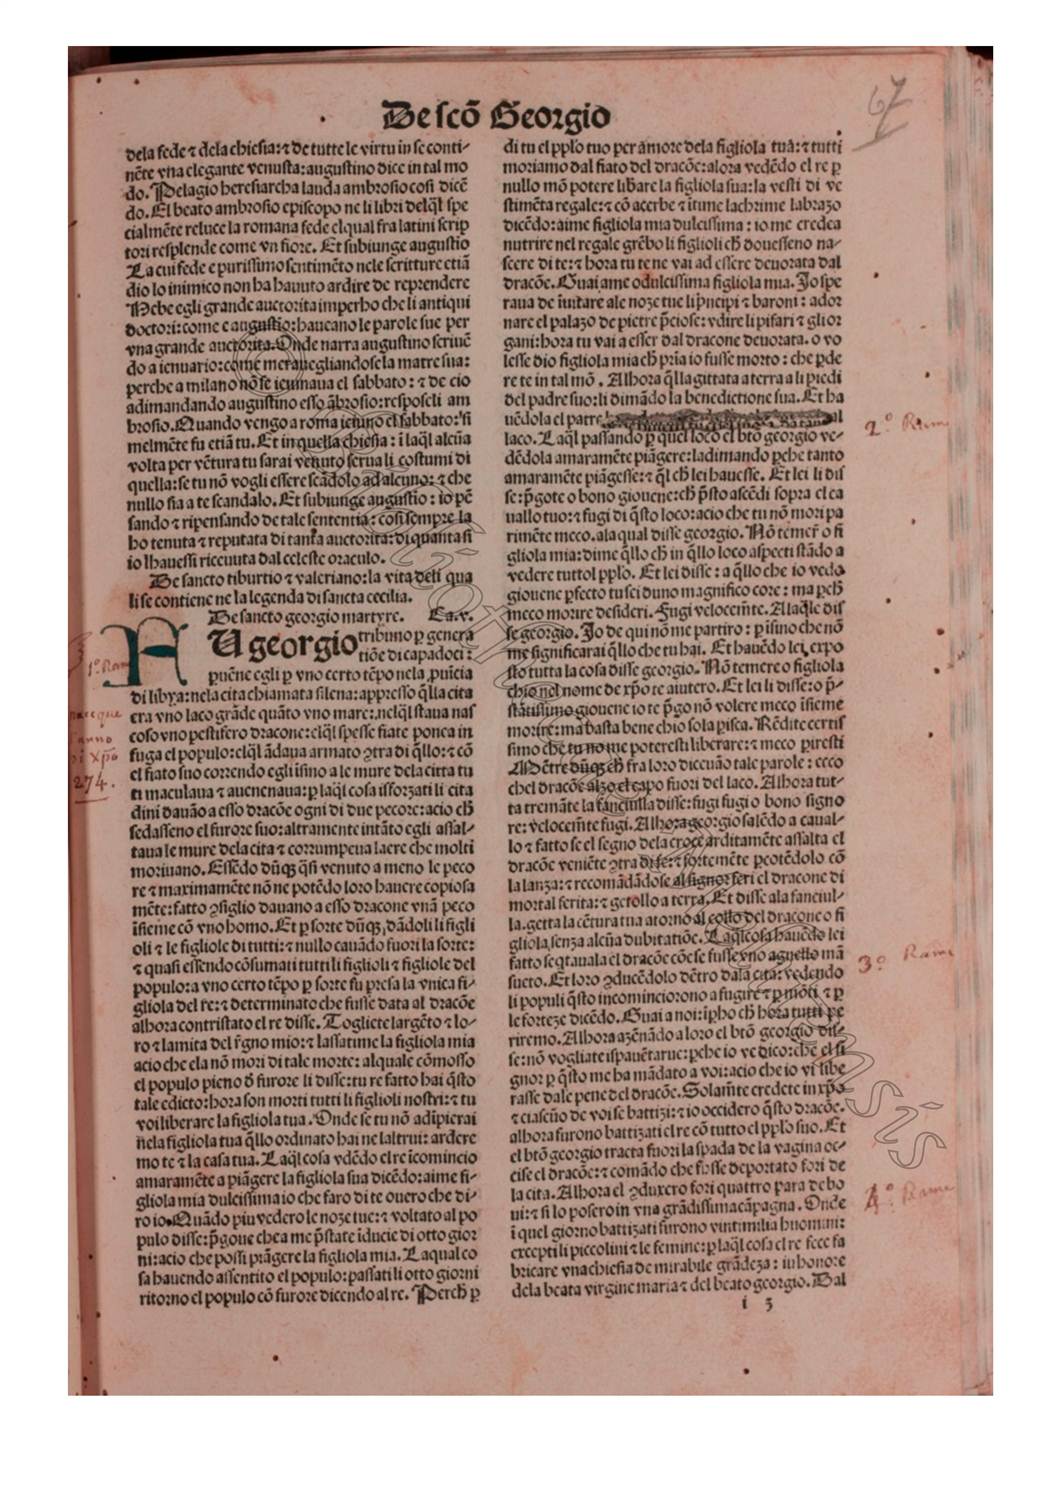 De scõ Georgio
67
dela fede ⁊ dela chiesia: ⁊ de tutte le virtu in se conti-
nẽte vna elegante venusta: augustino dice in tal mo
do. Pelagio heresiarcha lauda ambrosio cosi dicẽ
do. El beato ambrosio episcopo ne li libri delq̃l spe
cialmẽte reluce la romana fede elqual fra latini scrip
tori resplende come vn fiore. Et subiunge augustio
La cui fede e purissimo sentimẽto nele scritture etiã
dio lo inimico non ha hauuto ardire de reprendere
Hebe egli grande auctorita imperho che li antiqui
doctori: come e augustio: haueano le parole sue per
vna grande auctorita. Onde narra augustino scriuẽ
do a ienuario: come merauegliandosela matre sua:
perche a milano nõ se ieiunaua el sabbato: ⁊ de cio
adimandando augustino esso ãbrosio: resposeli am
brosio. Quando vengo a roma ieiuno el sabbato: si
melmẽte fu etiã tu. Et in quella chiesia: ĩ laq̃l alcũa
volta per vẽtura tu sarai venuto serua li costumi di
quella: se tu nõ vogli essere scãdolo ad alcuno: ⁊ che
nullo sia a te scandalo. Et subiunge augustio: io pẽ
sando ⁊ ripensando de tale sententia: cosi sempre la
ho tenuta ⁊ reputata di tanta auctorita: di quanta si
io lhauessi riceuuta dal celeste oraculo.
De sancto tiburtio ⁊ valeriano: la vita deli qua
li se contiene ne la legenda di sancta cecilia.
De sancto georgio martyre. Ca.v.
U georgio tribuno ꝑ genera
tiõe di capadoci:
puẽne egli ꝑ vno certo tẽpo nela ꝓuĩcia
di libya: nela cita chiamata silena: appresso q̃lla cita
era vno laco grãde quãto vno mare: nelq̃l staua nas
coso vno pestifero dracone: elq̃l spesse fiate ponea in
fuga el populo: elq̃l ãdaua armato ↄtra di q̃llo: ⁊ cõ
el fiato suo correndo egli ĩsino a le mure dela citta tu
ti maculaua ⁊ auenenaua: ꝑ laq̃l cosa isforzati li cita
dini dauão a esso dracõe ogni di due pecore: acio ch̃
sedasseno el furore suo: altramente intãto egli assal-
taua le mure dela cita ⁊ corrumpeua laere che molti
moriuano. Essẽdo dũq̃ q̃si venuto a meno le peco
re ⁊ maximamẽte nõ ne potẽdo loro hauere copiosa
mẽte: fatto ↄsiglio dauano a esso dracone vnã peco
ĩsieme cõ vno homo. Et ꝑ sorte dũq̃, dãdoli li figli
oli ⁊ le figliole di tutti: ⁊ nullo cauãdo fuori la sorte:
⁊ quasi essendo cõsumati tutti li figlioli ⁊ figliole del
populo: a vno certo tẽpo ꝑ sorte fu presa la vnica fi-
gliola del re: ⁊ determinato che fusse data al dracõe
alhora contristato el re disse. Togliete largẽto ⁊ lo-
ro ⁊ lamita del r̃gno mio: ⁊ lassatime la figliola mia
acio che ela nõ mori di tale morte: alquale cõmosso
el populo pieno đ furore li disse: tu re fatto hai q̃sto
tale edicto: hora son morti tutti li figlioli nostri: ⁊ tu
voi liberare la figliola tua. Onde se tu nõ adipierai
ñela figliola tua q̃llo ordinato hai ne laltrui: ardere
mo te ⁊ la casa tua. Laq̃l cosa vdẽdo el re ĩcomincio
amaramẽte a piãgere la figliola sua dicẽdo: aime fi-
gliola mia dulcissima io che faro di te ouero che di-
ro io. Quãdo piu vedero le noze tue: ⁊ voltato al po
pulo disse: p̃goue che a me p̃state ĩducie di otto gior
ni: acio che possi piãgere la figliola mia. Laqual co
sa hauendo assentito el populo: passati li otto giorni
ritorno el populo cõ furore dicendo al re. Perch̃ ꝑ
di tu el pplo tuo per amore dela figliola tua: ⁊ tutti
moriamo dal fiato del dracõe: alora vedẽdo el re ꝑ
nullo mõ potere libare la figliola sua: la vesti di ve
stimẽta regale: ⁊ cõ acerbe ⁊ itime lachrime labrazo
dicẽdo: aime figliola mia dulcissima: io me credea
nutrire nel regale grẽbo li figlioli ch̃ douesseno na-
scere di te: ⁊ hora tu te ne vai ad essere deuorata dal
dracõe. Guai ame o dulcissima figliola mia. Io spe
raua de ĩuitare ale noze tue li p̃ncipi ⁊ baroni: ador
nare el palazo de pietre p̃ciose: vdire li pifari ⁊ glior
gani: hora tu vai a esser dal dracone deuorata. o vo
lesse dio figliola mia ch̃ pria io fusse morto: che ꝑde
re te in tal mõ. Alhora q̃lla gittata a terra a li piedi
del padre suo: li dimãdo la benedictione sua. Et ha
uẽdola el patre al
laco. Laq̃l passando ꝑ quel loco el btõ georgio ve-
dẽdola amaramẽte piãgere: ladimando ꝑche tanto
amaramẽte piãgesse: ⁊ q̃l ch̃ lei hauesse. Et lei li dis
se: p̃gote o bono giouene: ch̃ p̃sto ascẽdi sopra el ca
uallo tuo: ⁊ fugi di q̃sto loco: acio che tu nõ mori pa
rimẽte meco. ala qual disse georgio. Nõ temer̃ o fi
gliola mia: dime q̃llo ch̃ in q̃llo loco aspecti stãdo a
vedere tuttol pplo. Et lei disse: a q̃llo che io vedo
giouene ꝑfecto tu sci duno magnifico core: ma ꝑch̃
meco morire desideri. Fugi velocem̃te. A laq̃le dis
se georgio. Io de qui nõ me partiro: ꝑ isino che nõ
me significarai q̃llo che tu hai. Et hauẽdo lei expo
sto tutta la cosa disse georgio. Nõ temere o figliola
chio nel nome de xp̃o te aiutero. Et lei li disse: o p̃-
stãtissimo giouene io te p̃go nõ volere meco ĩsieme
morire: ma basta bene chio sola ꝑisca. Rẽdite certis
simo che tu no me poteresti liberare: ⁊ meco ꝑiresti
Mẽtre dũq̃ ch̃ fra loro diceuão tale parole: ecco
chel dracõe alzo el capo fuori del laco. Alhora tut-
ta tremãte la fanciulla disse: fugi fugi o bono signo
re: velocem̃te fugi. Alhora georgio salẽdo a caual-
lo ⁊ fatto se el segno dela croce arditamẽte assalta el
dracõe veniẽte ↄtra di se: ⁊ fortemẽte ꝑcotẽdolo cõ
la lanza: ⁊ recomãdãdose al signor feri el dracone di
mortal ferita: ⁊ getollo a terra. Et disse ala fanciul-
la. getta la cẽtura tua atorno al collo del dracone o fi
gliola senza alcũa dubitatiõe. Laq̃l cosa hauẽdo lei
fatto seq̃taua la el dracõe cõe se fusse vno agnello mã
sueto. Et loro ↄducẽdolo dẽtro dala cita: vedendo
li populi q̃sto incominciorono a fugire ⁊ ꝑ mõti ⁊ ꝑ
le forteze dicẽdo. Guai a noi: ĩꝑho ch̃ hora tutti pe
riremo. Alhora azẽnãdo a loro el btõ georgio dis-
se: nõ vogliate ispauẽtarue: ꝑche io ve dico: che el si
gnor ꝑ q̃sto me ha mãdato a voi: acio che io vi libe
rasse dale pene del dracõe. Solam̃te credete in xp̃o
⁊ ciascũo de voi se battizi: ⁊ io occidero q̃sto dracõe.
alhora furono battizati el re cõ tutto el pplo suo. Et
el btõ georgio tracta fuori la spada de la vagina oc-
cise el dracõe: ⁊ comãdo che fusse deportato fori de
la cita. Alhora el ↄduxero fori quattro para de bo
ui: ⁊ si lo posero in vna grãdissima cãpagna. Onde
ĩ quel giorno battizati furono vintimilia huomini:
excepti li piccolini ⁊ le femine: ꝑ laq̃l cosa el re fece fa
bricare vna chiesia de mirabile grãdeza: in honore
dela beata virgine maria ⁊ del beato georgio. Dal
i 3
1º. Ram
nacque
anno
di Xp̃o
274.
2º. Rame
3º. Rame
4º. Rame